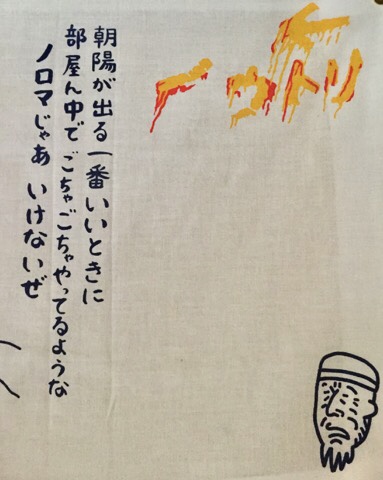 ウトリ
朝陽が出る一番いいときに
部屋ん中でごちゃごちゃやってるような
ノロマじゃあ いけないぜ